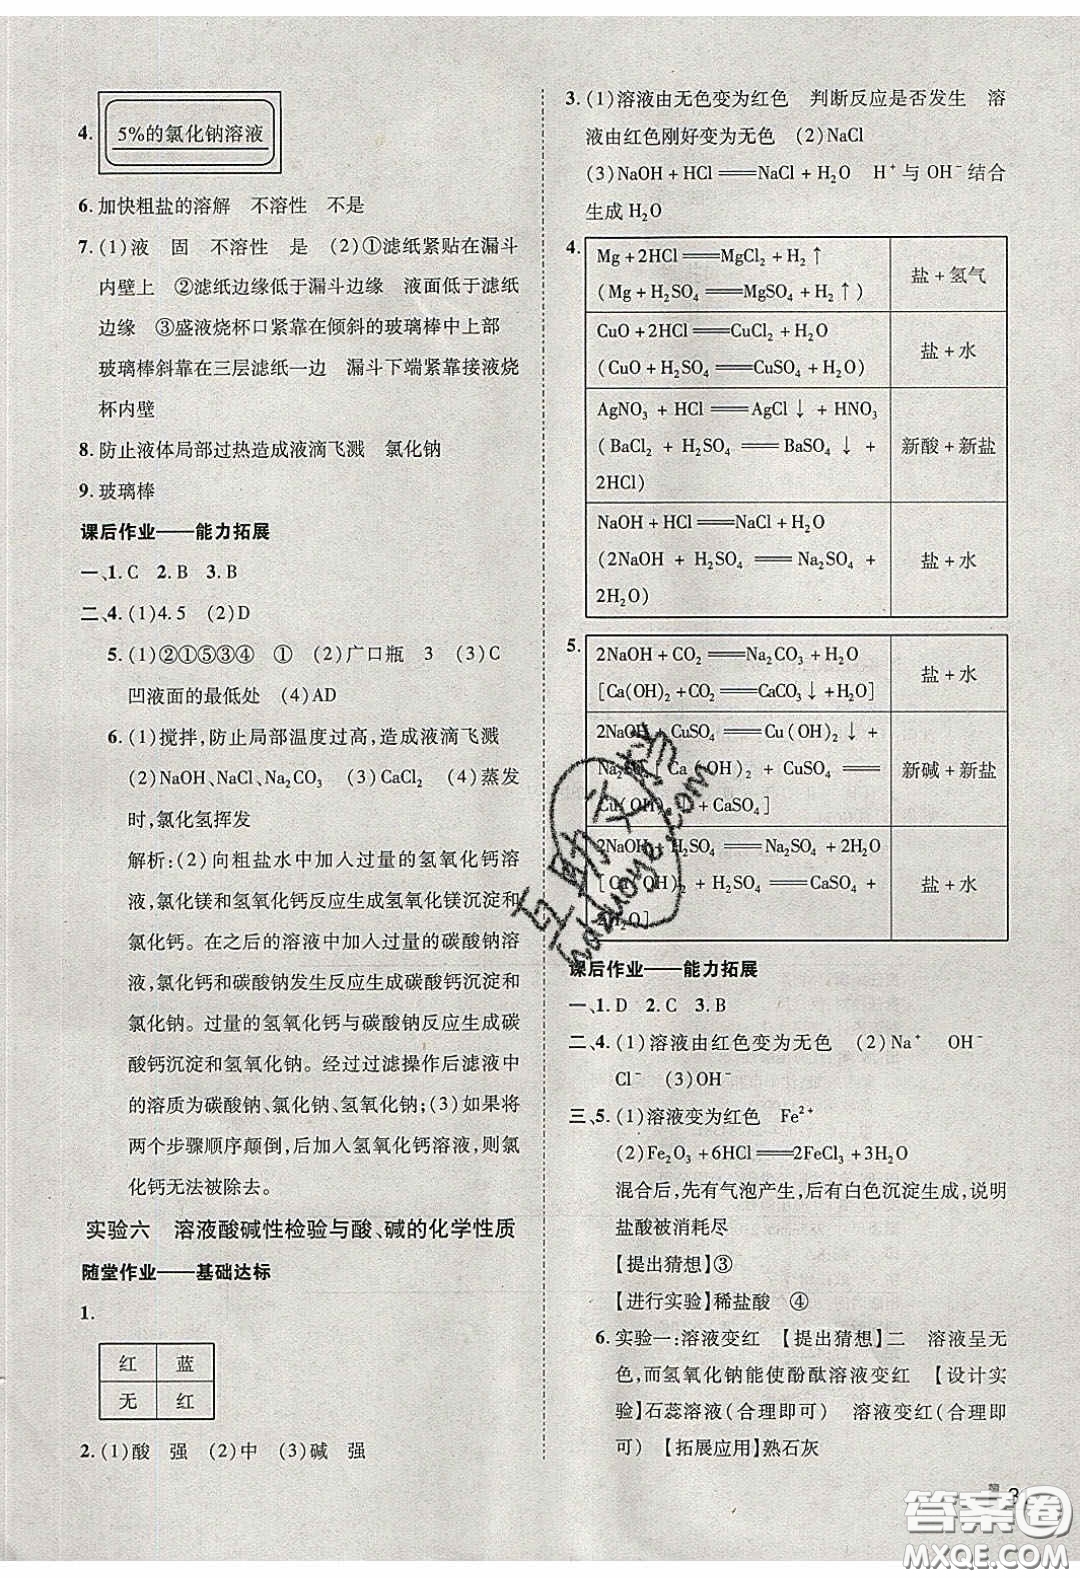 4. 5%的氯化钠溶液
6. 加快粗盐的溶解 不溶性 不是
7. (1)液 固 不溶性 是 (2)①滤纸紧贴在漏斗
内壁上 ②滤纸边缘低于漏斗边缘 液面低于滤纸
边缘 ③盛液烧杯口紧靠在倾斜的玻璃棒中上部
玻璃棒斜靠在三层滤纸一边 漏斗下端紧靠接液烧
杯内壁
8. 防止液体局部过热造成液滴飞溅 氯化钠
9. 玻璃棒
课后作业——能力拓展
一、1. C 2. B 3. B
二、4. (1)4.5 (2)D
5. (1)②①⑤③④ ① (2)广口瓶 3 (3)C
凹液面的最低处 (4)AD
6. (1)搅拌,防止局部温度过高,造成液滴飞溅
(2)NaOH、NaCl、Na₂CO₃ (3)CaCl₂ (4)蒸发
时,氯化氢挥发
解析:(2)向粗盐水中加入过量的氢氧化钙溶
液,氯化镁和氢氧化钙反应生成氢氧化镁沉淀和
氯化钙。在之后的溶液中加入过量的碳酸钠溶
液,氯化钙和碳酸钠发生反应生成碳酸钙沉淀和
氯化钠。过量的氢氧化钙与碳酸钠反应生成碳
酸钙沉淀和氢氧化钠。经过过滤操作后滤液中
的溶质为碳酸钠、氯化钠、氢氧化钠;(3)如果将
两个步骤顺序颠倒,后加入氢氧化钙溶液,则氯
化钙无法被除去。
实验六 溶液酸碱性检验与酸、碱的化学性质
随堂作业——基础达标
1.
红 蓝
无 红
2. (1)酸 强 (2)中 (3)碱 强
3. (1)溶液由无色变为红色 判断反应是否发生 溶
液由红色刚好变为无色 (2)NaCl
(3)NaOH + HCl══NaCl + H₂O H⁺与 OH⁻结合
生成 H₂O
4. Mg + 2HCl══MgCl₂ + H₂↑
(Mg + H₂SO₄══MgSO₄ + H₂↑) 盐 + 氢气
CuO + 2HCl══CuCl₂ + H₂O
(CuO + H₂SO₄══CuSO₄ + H₂O) 盐 + 水
AgNO₃ + HCl══AgCl↓ + HNO₃
(BaCl₂ + H₂SO₄══BaSO₄↓ + 新酸 + 新盐
2HCl)
NaOH + HCl══NaCl + H₂O
(2NaOH + H₂SO₄══Na₂SO₄ + 盐 + 水
2H₂O)
5. 2NaOH + CO₂══Na₂CO₃ + H₂O
[Ca(OH)₂ + CO₂══CaCO₃↓ + H₂O] 盐 + 水
2NaOH + CuSO₄══Cu(OH)₂↓ +
Na₂SO₄[Ca(OH)₂ + CuSO₄══ 新碱 + 新盐
Cu(OH)₂↓ + CaSO₄]
2NaOH + H₂SO₄══Na₂SO₄ + 2H₂O
[Ca(OH)₂ + H₂SO₄══CaSO₄ + 盐 + 水
2H₂O]
课后作业——能力拓展
一、1. D 2. C 3. B
二、4. (1)溶液由红色变为无色 (2)Na⁺ OH⁻
Cl⁻ (3)OH⁻
三、5. (1)溶液变为红色 Fe²⁺
(2)Fe₂O₃ + 6HCl══2FeCl₃ + 3H₂O
混合后,先有气泡产生,后有白色沉淀生成,说明
盐酸被消耗尽
【提出猜想】③
【进行实验】稀盐酸 ④
6. 实验一:溶液变红 【提出猜想】二 溶液呈无
色,而氢氧化钠能使酚酞溶液变红 【设计实
验】石蕊溶液(合理即可) 溶液变红(合理即
可) 【拓展应用】熟石灰
3
互助文档
huzuoye.com
答案圈
MXQE.COM